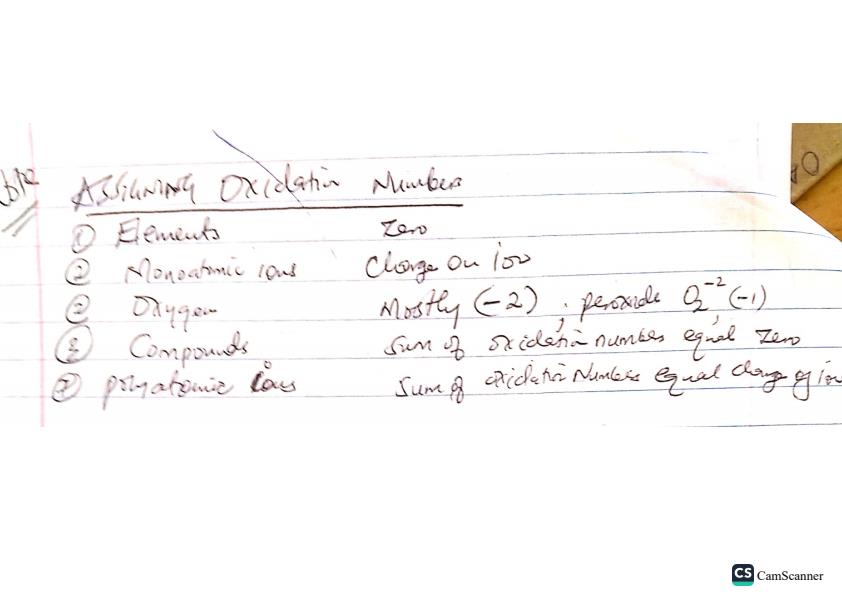 ASSIGNING Oxidation Numbers
① Elements Zero
② Monoatomic ions Charge on ion
② Oxygen Mostly (-2) ; peroxide O₂⁻² (-1)
③ Compounds Sum of oxidation numbers equal zero
④ polyatomic ions Sum of oxidation Numbers equal charge of ion
CS CamScanner